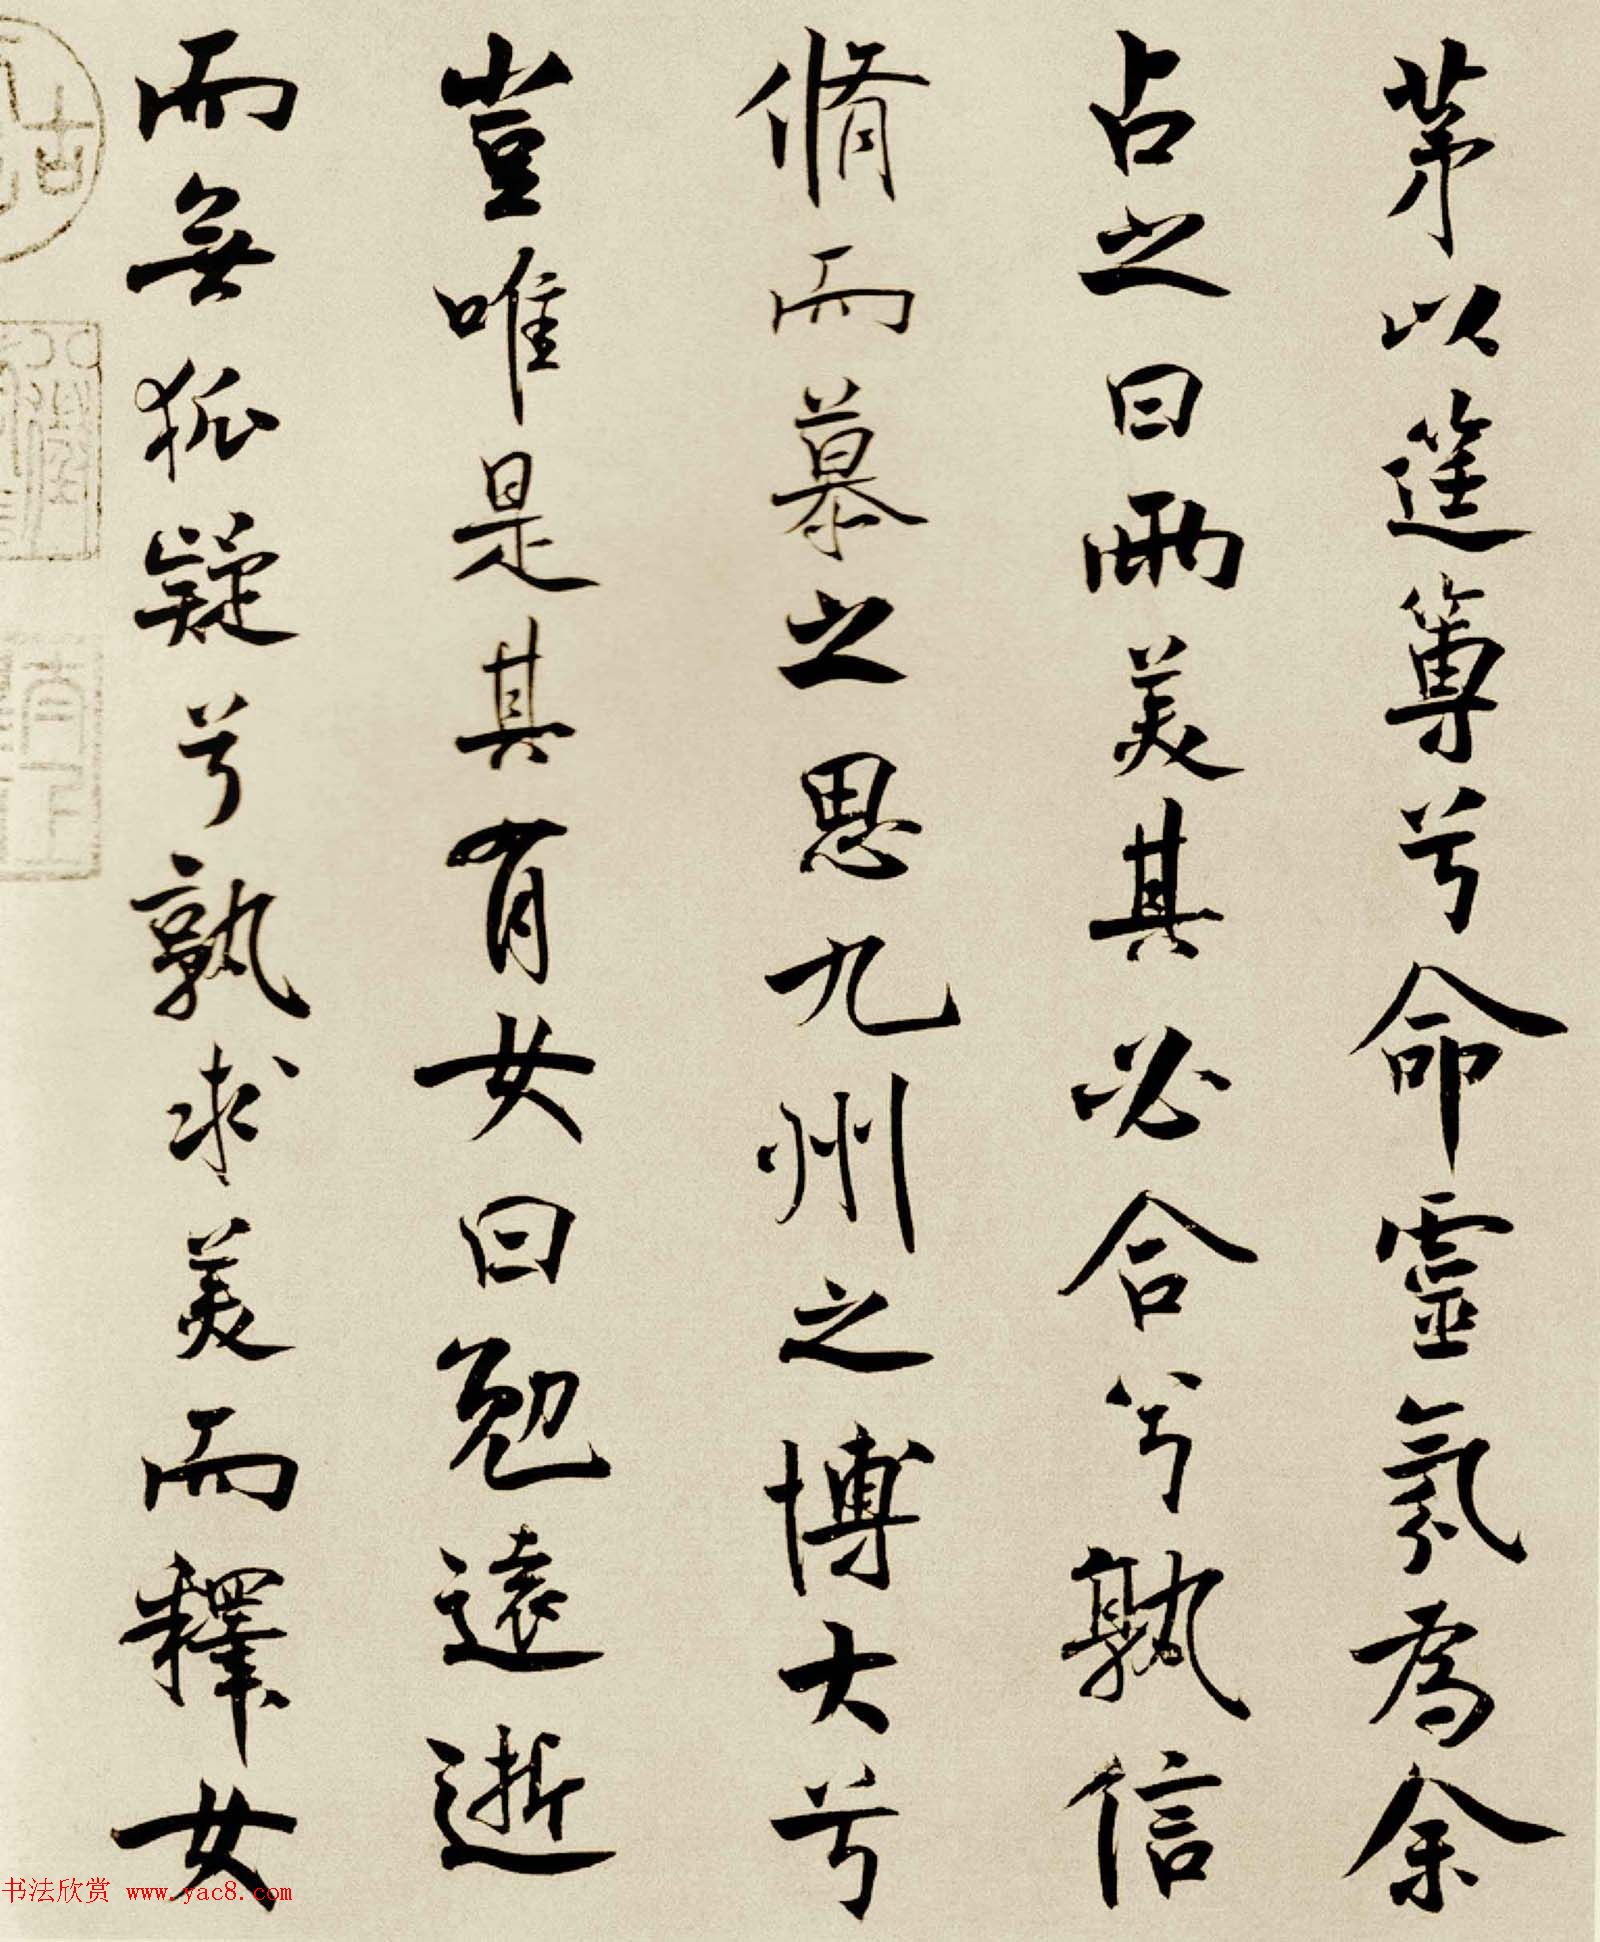 茅以筳篿兮命靈氛為余
占之曰兩美其必合兮孰信
脩而慕之思九州之博大兮
豈唯是其有女曰勉遠逝
而無狐疑兮孰求美而釋女
书法欣赏 www.yac8.com